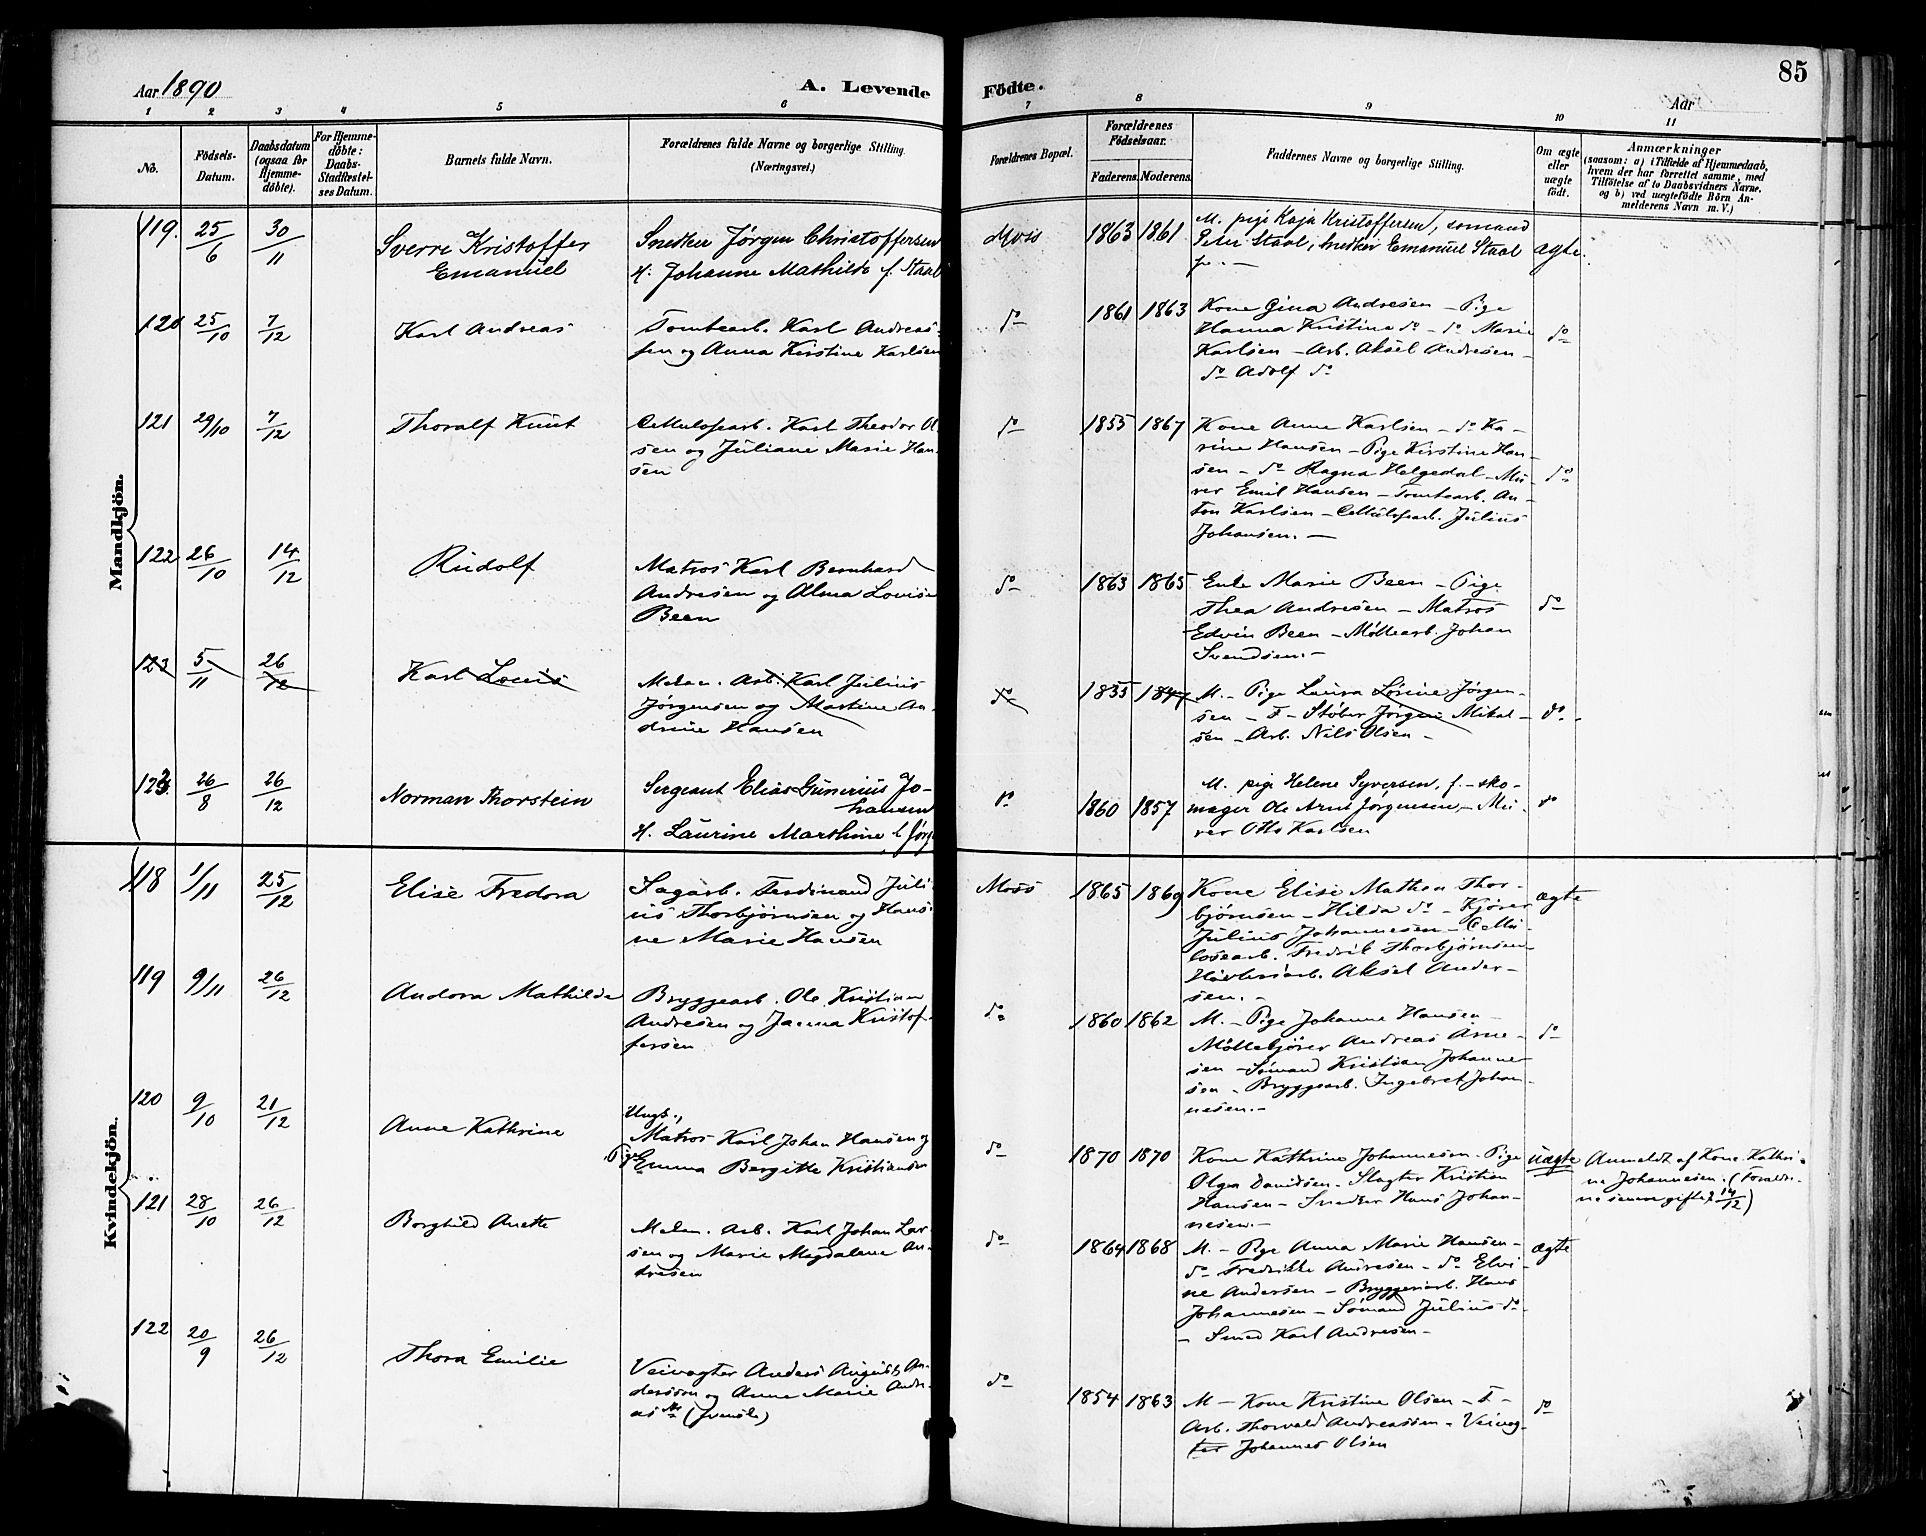 Aar 1890
A. Levende
Födte.
Aar
85
1 2 3 4 5 6 7 8 9 10 11
No.
Födsels-
Datum.
Daabsdatum
(ogsaa för
Hjemme-
döbte).
For Hjemme-
döbte:
Daabs-
Stadfæstel-
ses Datum.
Barnets fulde Navn.
Forældrenes fulde Navne og borgerlige Stilling.
(Næringsvei.)
Forældrenes Bopæl.
Forældrenes
Födselsaar.
Faderens. Moderens.
Faddernes Navne og borgerlige Stilling.
Om ægte
eller
uægte
födt.
Anmærkninger
(saasom: a) i Tilfælde af Hjemmedaab,
hvem der har forrettet samme, med
Tilföielse af to Daabsvidners Navne,
og b) ved uægtefödte Börn An-
melderens Navn m. V.)
Mandkjön.
119. 25/6 30/11
Sverre Kristoffer
Emanuel
Snedker Jørgen Christoffersen
H. Johanne Mathilde f. Staal
Moss 1863 1861
M. pige Kaja Kristoffersen, sømand
Peter Staal, Snedker Emanuel Staal
ægte.
120 25/10 7/12
Karl Andreas
Tomtearb. Karl Andreas-
sen og Anna Kirstine Karlsen
do 1861 1863
Kone Gina Andresen – Pige
Hanna Kristine do – do Marie
Karlsen – Arb. Aksel Andresen –
do Adolf do
do
121 29/10 7/12
Thoralf Knut
Cellulosearb. Karl Theodor Ol-
sen og Juliane Marie Han-
sen
do 1855 1867
Kone Anne Karlsen – do Ka-
rine Hansen – Pige Kirstine Han-
sen – do Ragna Helgedal – Mu-
rer Emil Hansen – Tomtearb. An-
ton Karlsen – Cellulosearb. Julius
Johansen. –
do
122 26/10 14/12
Rudolf
Matros Karl Bernhard
Andresen og Alma Lovise
Been
do 1863 1865
Enke Marie Been – Pige
Thea Andresen – Matros
Edvin Been – Møllearb. Johan
Svendsen. –
do
123 5/11 26/12
Karl Louis
Mekan. Arb. Karl Julius
Jørgensen og Martine An-
drine Hansen
do 1855 1847
M. – Pige Laura Lovine Jørgen-
sen – F – Støber Jørgen Mikal-
sen – Arb. Nils Olsen –
do
123 26/8 26/12
Norman Thorstein
Sergeant Elias Gunerius Jo-
hansen
H. Laurine Marthine f. Jørg
do 1860 1857
M. pige Helene Syversen, f. – sko-
mager Ole Arnt Jørgensen, – Mu-
rer Otto Karlsen
do
Kvindekjön.
118 1/11 25/12
Elise Fredora
Sagarb. Ferdinand Juli-
us Thorbjørnsen og Hans-
ne Marie Hansen
Moss 1865 1869
Kone Elise Mathea Thor-
bjørnsen – Hilda do – Kjører
Julius Johannesen – Cellu-
losearb. Fredrik Thorbjørnsen
Høvleriarb. Aksel Ander-
sen. –
ægte
119 9/11 26/12
Andora Mathilde
Bryggearb. Ole Kristian
Andresen og Janna Kristof-
fersen
do 1860 1862
M. – Pige Johanne Hansen –
Møllekjører Andreas Arne-
sen – Sømand Kristian Johanne-
sen – Bryggearb. Ingebret Johan-
nesen. –
do
120 9/10 21/12
Anne Kathrine
Ungk.,
Matros Karl Johan Hansen og
Pige Emma Bergitte Kristiansen
do 1870 1870
Kone Kathrine Johannesen – Pige
Olga Davidsen – Slagter Kristian
Hansen – Snedker Hans Johan-
nesen. –
uægte
Anmeldt af Kone Kathri-
ne Johannesen. (Forældre-
ne senere giftet 14/12)
121 28/10 26/12
Borghild Anette
Mekan. Arb. Karl Johan Lar-
sen og Marie Magdalene An-
dresen
do 1864 1868
M. – Pige Anna Marie Hansen –
do Fredrikke Andresen – do Elvi-
ne Andersen – Bryggeriarb. Hans
Johannesen – Sømand Julius do –
– Smed Karl Andresen –
ægte
122 20/9 26/12
Thora Emilie
Veivogter Anders August An-
dersson og Anne Marie Andre-
as (svensk)
do 1854 1863
M – Kone Kristine Olsen – F –
Arb. Thorvald Andreassen – Veivog-
ter Johannes Olsen
do